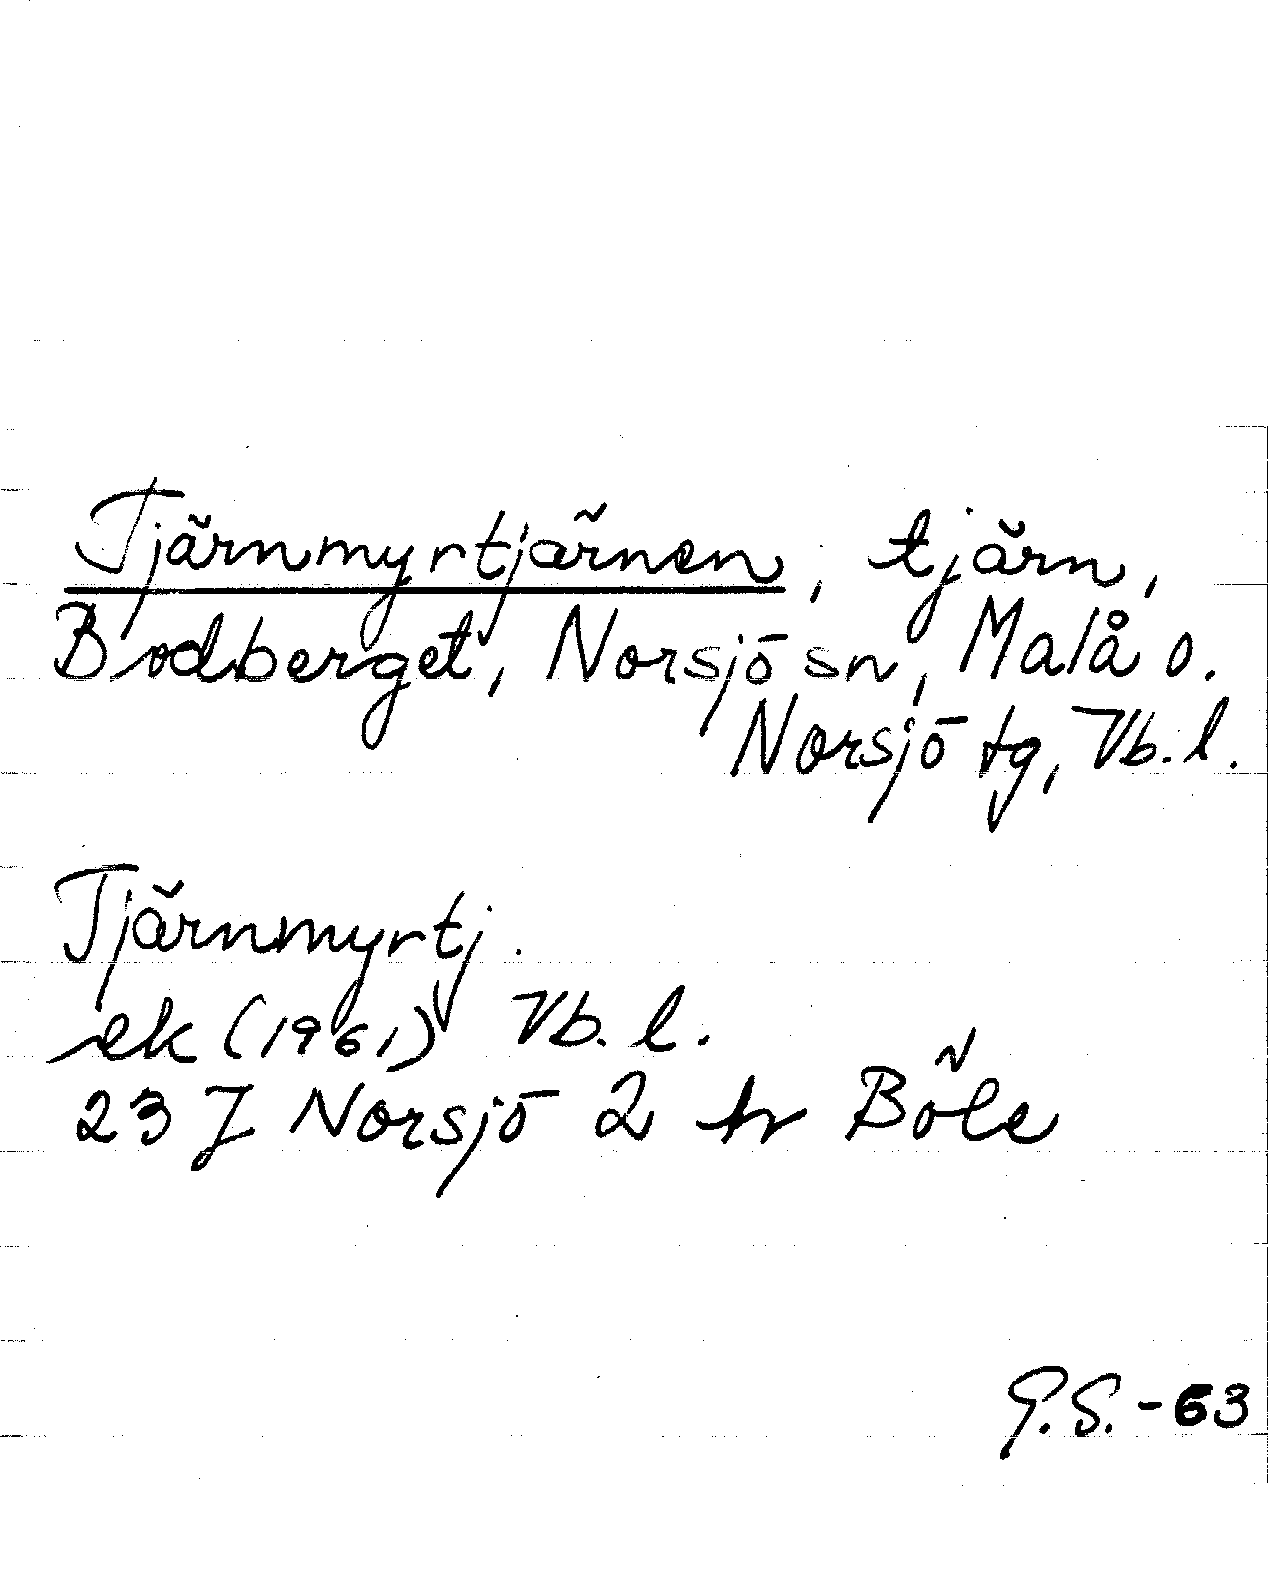 Tjärnmyrtjärnen, tjärn,
Bodberget, Norsjö sn, Malå o.
Norsjö tg, Vb. l.
Tjärnmyrtj.
ek (1961) Vb. l.
23 J Norsjö 2 hr Böle
G.S. -63